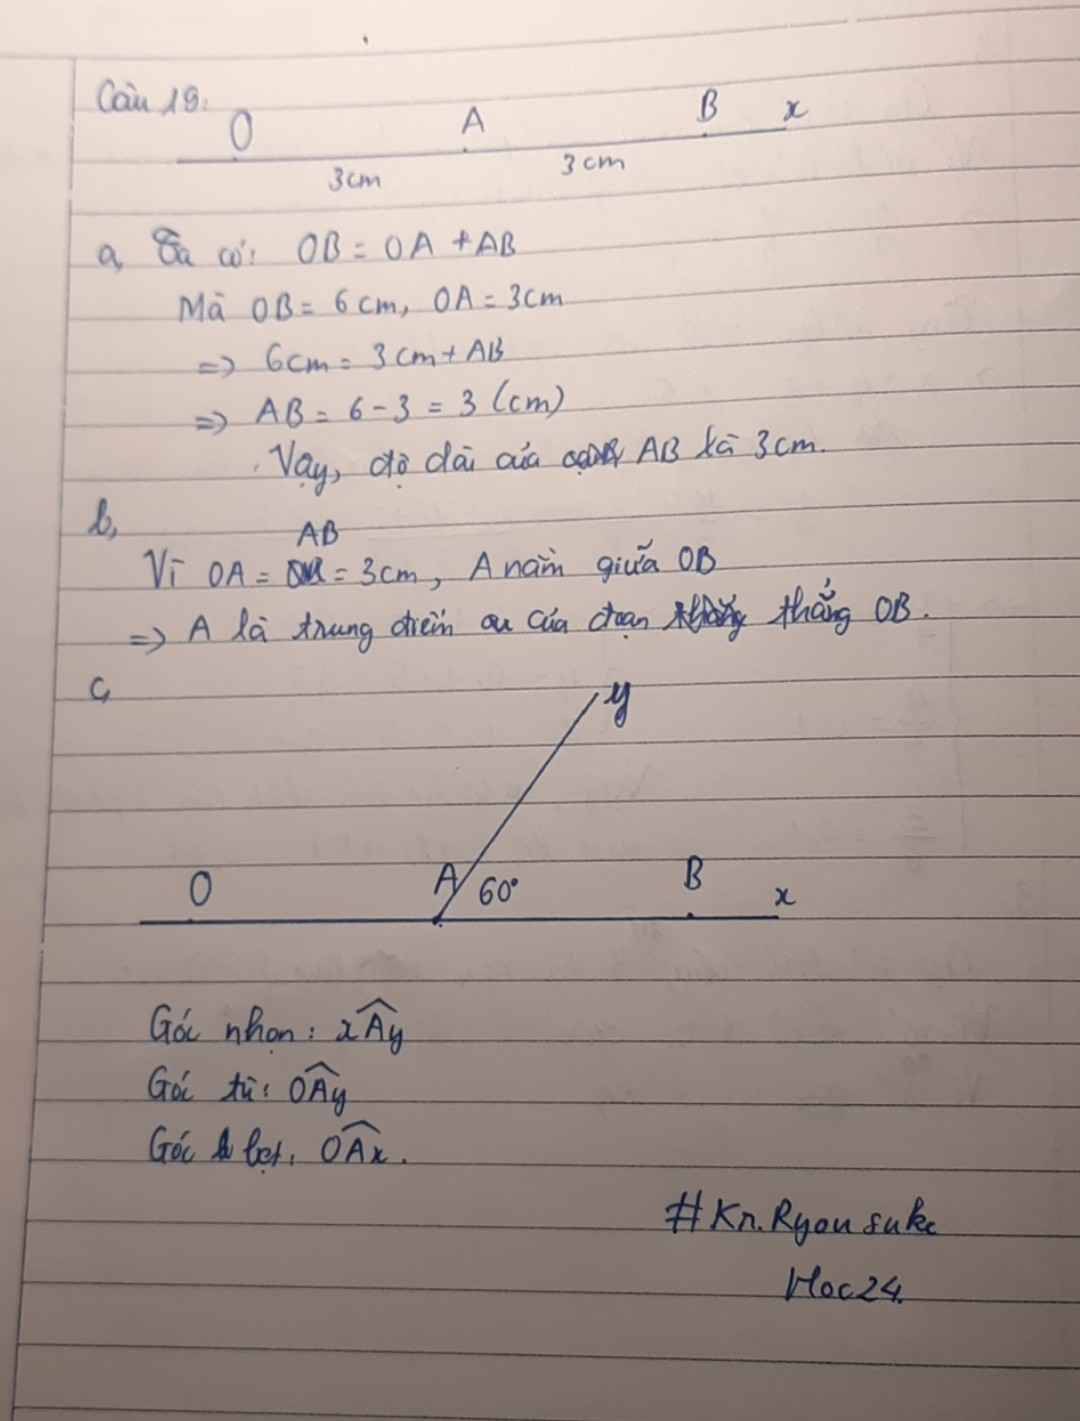 Câu 19:
O A B x
3cm 3cm
a, Ta có: OB = OA + AB
Mà OB = 6cm, OA = 3cm
=> 6cm = 3cm + AB
=> AB = 6 - 3 = 3 (cm)
Vậy, độ dài của AB là 3cm.
b,
AB
Vì OA = = 3cm, A nằm giữa OB
=> A là trung điểm của đoạn thẳng OB.
c,
y
O A 60° B x
Góc nhọn: xÂy
Góc tù: OÂy
Góc bẹt: OÂx.
#Kn.Ryousuke
Hoc24.